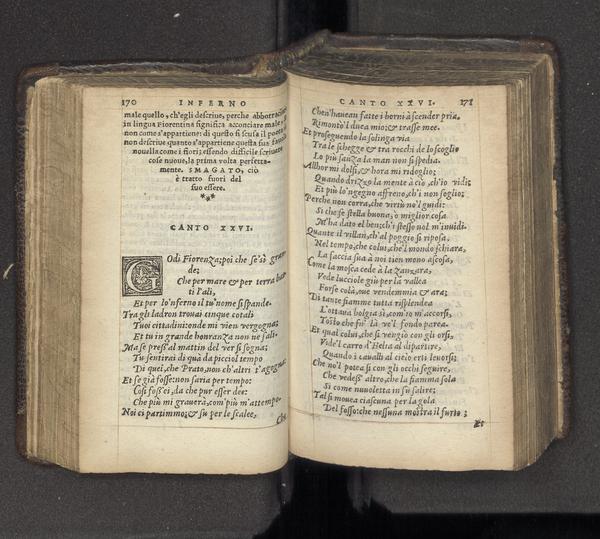 170 INFERNO
male quello, ch'egli descriue, perche abborracciare
in lingua Fiorentina significa acconciare male,
non come s'appartiene: di questo si scusa il poeta
non descriue quanto s'appartiene questa sua fauola
nouella come i fiori; essendo difficile scriuere
cose nuoue, la prima volta perfetta-
mente. SMAGATO, ciò
è tratto fuori del
suo essere.
CANTO XXVI.
GOdi Fiorenza; poi che se' sì gran
de;
Che per mare & per terra bat
ti l'ali,
Et per lo'nferno il tu' nome si spande.
Tra gli ladron trouai cinque cotali
Tuoi cittadini: onde mi vien vergogna;
Et tu in grande honranza non ne sali.
Ma se press' al mattin del ver si sogna;
Tu sentirai di quà da picciol tempo
Di quel, che Prato, non ch'altri t'agogna:
Et se già fosse; non saria per tempo:
Così foss'ei, da che pur esser dee:
Che più mi grauerà, com' più m'attempo.
Noi ci partimmo; & su per le scalee,
Che
CANTO XXVI. 171
Che n'haueau fatte i borni à scender pria,
Rimontò'l duca mio; & trasse mee.
Et proseguendo la solinga via
Tra le schegge & tra rocchi de lo scoglio
Lo piè sanza la man non si spedia.
Allhor mi dolsi, & hora mi ridoglio;
Quando drizzo la mente à ciò, ch'io vidi;
Et più lo'ngegno affreno, ch'i non soglio;
Perche non corra, che virtù no'l guidi:
Si che se stella buona, o miglior cosa
M'ha dato el ben; ch'i stesso nol m'inuidi.
Quante il villan, ch'al poggio si riposa,
Nel tempo, che colui, che'l mondo schiara,
La faccia sua à noi tien meno ascosa,
Come la mosca cede à la zanzara,
Vede lucciole giù per la vallea
Forse colà, oue vendemmia & ara;
Di tante fiamme tutta risplendea
L'ottaua bolgia sì, com'io m'accorsi,
Tosto che fu' là ve'l fondo parea.
Et qual colui, che si vengiò con gli orsi,
Vide'l carro d'Helia al dipartire,
Quando i caualli al cielo erti leuorsi;
Che no'l potea si con gli occhi seguire,
Che vedess' altro, che la fiamma sola
Si come nuuoletta in su salire;
Tal si mouea ciascuna per la gola
Del fosso: che nessuna mostra il furto;
Et